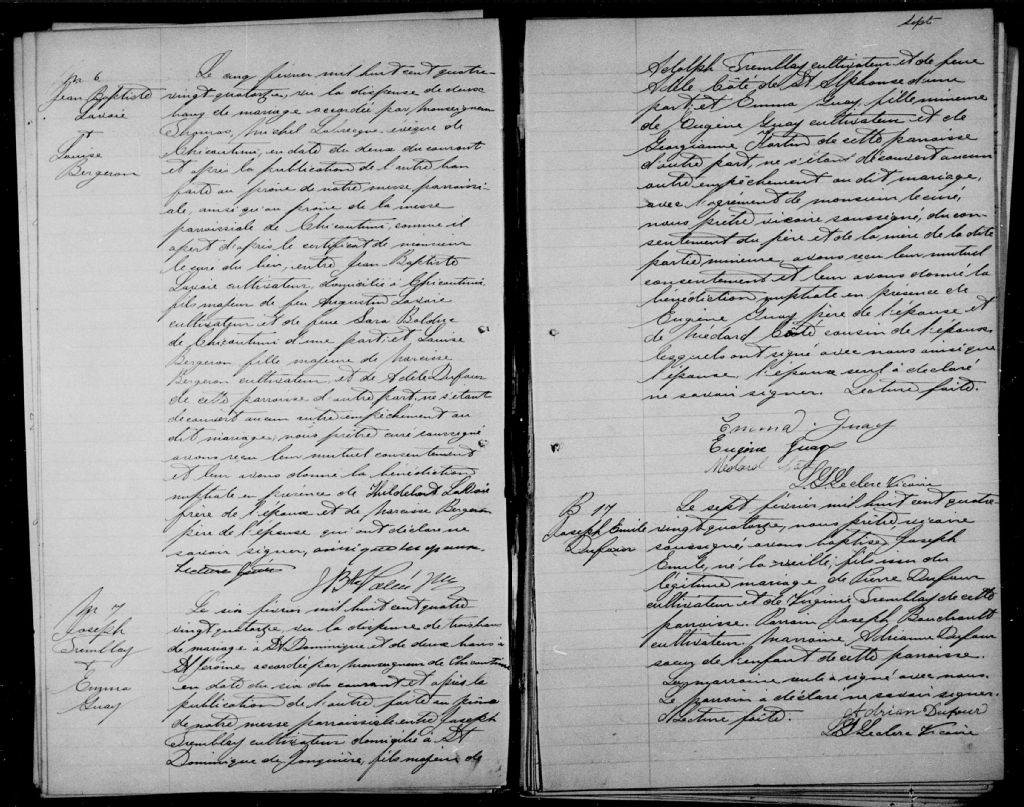 M. 6
Jean Baptiste
Lavoie
et
Louise
Bergeron
Le cinq février mil huit cent quatre-
vingt quatorze, vu la dispense de deux
bans de mariage accordée par monseigneur
Thomas, Michel Labrecque, évêque de
Chicoutimi, en date du deux du courant
et après la publication de l'autre ban
faite au prône de notre messe paroissi-
ale, ainsi qu'au prône de la messe
paroissiale de Chicoutimi, comme il
apert d'après le certificat de monsieur
le curé du lieu, entre Jean Baptiste
Lavoie cultivateur, domicilié à Chicoutimi,
fils majeur de feu Augustin Lavoie
cultivateur et de feue Sara
de Chicoutimi d'une part; et Louise
Bergeron fille majeure de Narcisse
Bergeron cultivateur et de Adèle Dufour
de cette paroisse d'autre part, ne s'étant
découvert aucun autre empêchement au
dit mariage, nous prêtre curé soussigné
avons reçu leur mutuel consentement
et leur avons donné la bénédiction
nuptiale en présence de Lavoie
frère de l'époux et de Narcisse Bergeron
père de l'épouse qui ont déclaré ne
savoir signer, ainsi que les époux.
Lecture faite
M. 7
Joseph
Tremblay
et
Emma
Guay
Le six février mil huit cent quatre
vingt quatorze, vu la dispense de trois bans
de mariage à St Dominique et de deux bans à
St Jérôme accordée par monseigneur de Chicoutimi
en date du six du courant et après la
publication de l'autre faite au prône
de notre messe paroissiale entre Joseph
Tremblay cultivateur domicilié à St
Dominique de Jonquière, fils majeur de
Sept.
Adolph Tremblay cultivateur et de feue
Adèle Côté de St Alphonse d'une
part; et Emma Guay, fille mineure
de Eugène Guay cultivateur et de
Georgianne Fortin de cette paroisse
d'autre part, ne s'étant découvert aucun
autre empêchement au dit mariage,
avec l'agrément de monsieur le curé,
nous prêtre vicaire soussigné, du con-
sentement du père et de la mère de la dite
partie mineure, avons reçu leur mutuel
consentement et leur avons donné la
bénédiction nuptiale en présence de
Eugène Guay père de l'épouse et
de Médard Côté cousin de l'épouse
lesquels ont signé avec nous ainsi que
l'épouse, l'époux seul a déclaré
ne savoir signer. Lecture faite.
Emma Guay
Eugène Guay
Médard
Leclerc Vicaire
B 17
Joseph Emile
Dufour
Le sept février mil huit cent quatre-
vingt quatorze, nous prêtre vicaire
soussigné, avons baptisé Joseph
Emile, né la veille, fils issu du
légitime mariage de Pierre Dufour
cultivateur et de Virginie Tremblay de cette
paroisse. Parrain Joseph Bouchard
cultivateur, marraine, Adrianne Dufour
soeur de l'enfant de cette paroisse.
La marraine seule a signé avec nous.
Le parrain a déclaré ne savoir signer.
Lecture faite.
Adrian Dufour
Leclerc Vicaire